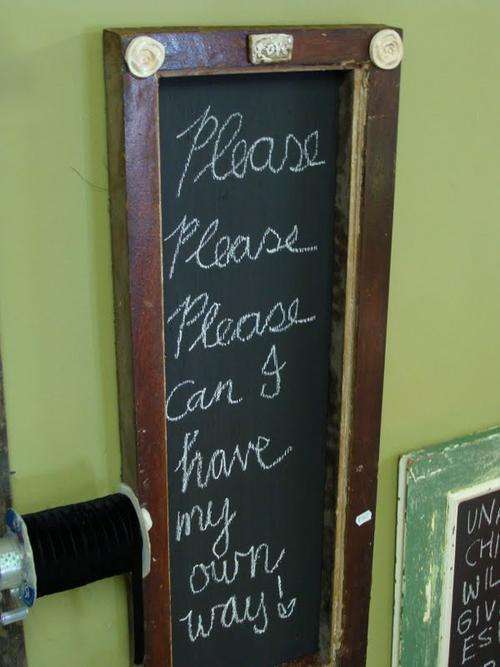 Please
Please
Please
can I
have
my
own
way!
UNA
CHI
WIL
GIV
ES